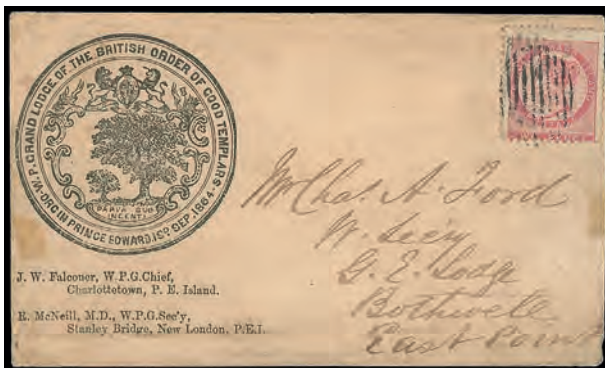 W.P. GRAND LODGE OF THE BRITISH ORDER OF GOOD TEMPLARS.
ORG IN PRINCE EDWARD ISD SEP. 1864.
PARVA SUB
INGENTI
J. W. Falconer, W.P.G.Chief,
Charlottetown, P. E. Island.
R. McNeill, M.D., W.P.G.Sec'y,
Stanley Bridge, New London, P.E.I.
Mr Chas. A. Ford
W. Sec'y
G. E. Lodge
Bothwell
East Point